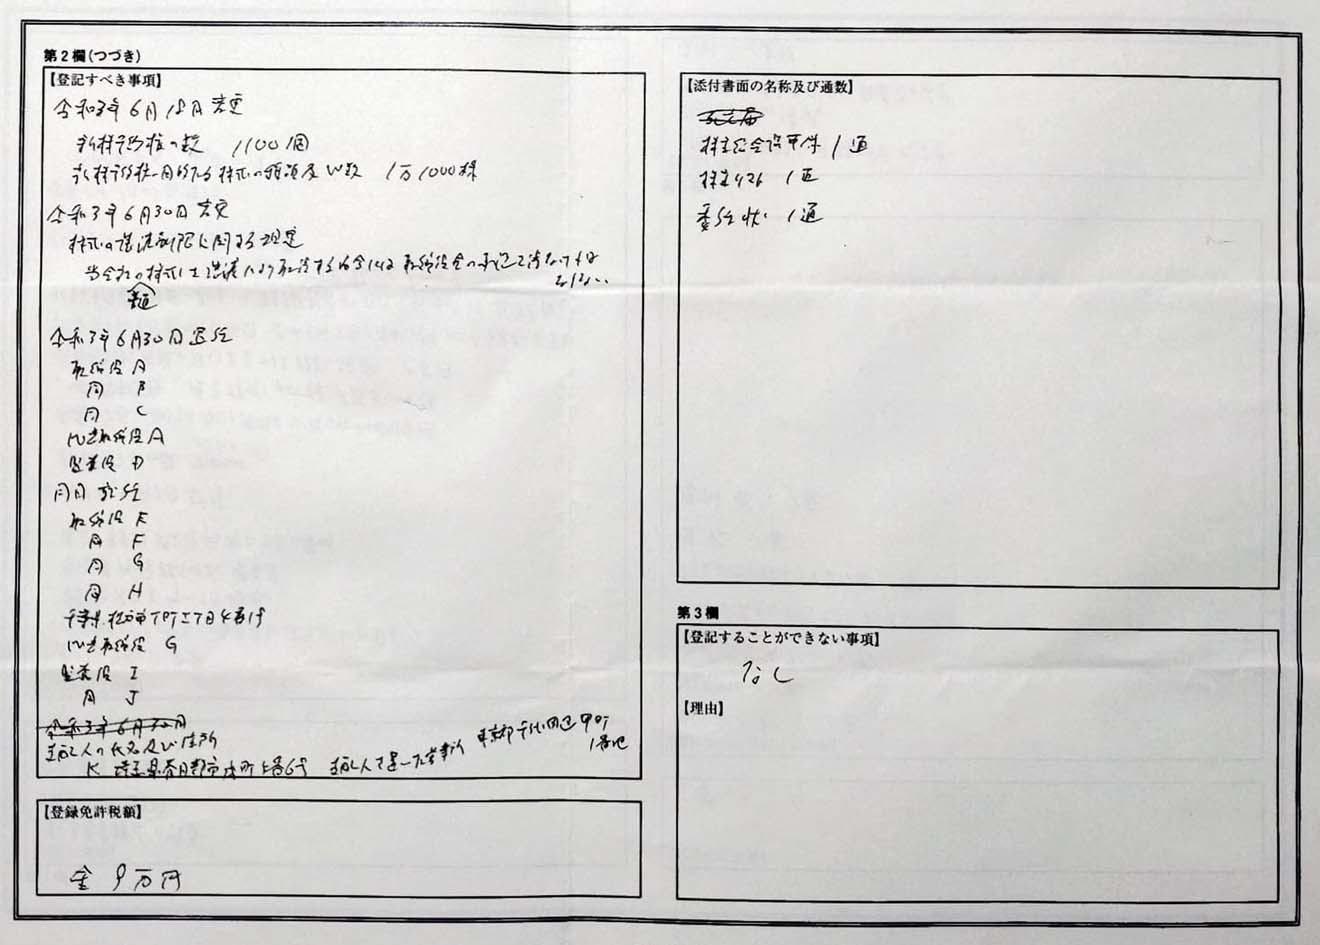 第2欄(つづき)
【登記すべき事項】
令和3年6月18日変更
新株予約権の数 1100個
新株予約権の目的たる株式の種類及び数 1万1000株
令和3年6月30日変更
株式の譲渡制限に関する規定
当会社の株式を譲渡により取得するには 取締役会の承認を得なければ
ならない。
令和3年6月30日退任
取締役 A
同 B
同 C
代表取締役 A
監査役 D
同日就任
取締役 E
同 F
同 G
同 H
千葉県松戸市
代表取締役 G
監査役 I
同 J
令和3年6月30日
支配人の氏名及び住所
K 埼玉県春日部市 支配人を置いた営業所 東京都千代田区甲町
1番地
【登録免許税額】
金 9万円
【添付書面の名称及び通数】
株主総会議事録 1通
株主リスト 1通
委任状 1通
第3欄
【登記することができない事項】
なし
【理由】